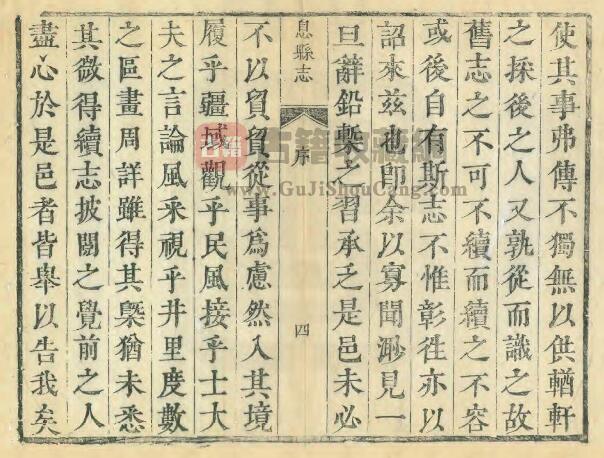 使其事弗傳不獨無以供輶軒
之採後之人又孰從而識之故
舊志之不可不續而續之不容
或後自有斯志不惟彰徃亦以
詔來茲也卽余以寡聞渺見一
旦辭鉛槧之習承乏是邑未必
息縣志
序
四
不以貿貿從事爲慮然入其境
履乎疆域觀乎民風接乎士大
夫之言論風采視乎井里度數
之區畫周詳雖得其槩猶未悉
其微得續志披閱之覺前之人
盡心於是邑者皆舉以告我矣
古籍
古籍收藏網
www.GuJiShouCang.com